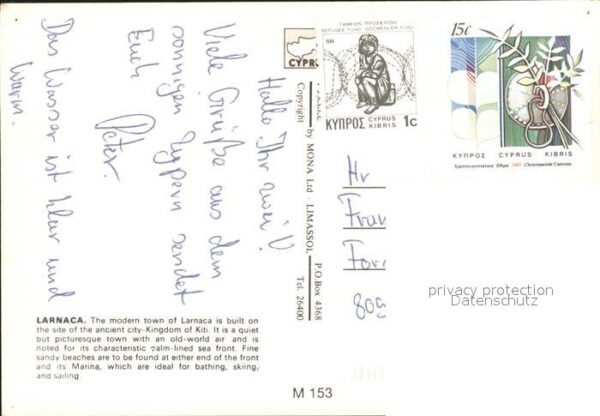 Hallo Ihr zwei!
Viele Grüße aus dem
sonnigen Zypern sendet
Euch
Peter.
Das Wasser ist klar und
warm.
LARNACA. The modern town of Larnaca is built on
the site of the ancient city-Kingdom of Kiti. It is a quiet
but picturesque town with an old-world air and is
noted for its characteristic palm-lined sea front. Fine
sandy beaches are to be found at either end of the front
and its Marina, which are ideal for bathing, skiing,
and sailing.
CYPR
Copyright by MONA Ltd - LIMASSOL P.O.Box 4368
Tel. 26400
M 153
ΤΑΜΕΙΟΝ ΠΡΟΣΦΥΓΩΝ
REFUGEE FUND GÖÇMENLER FONU
1984
ΚΥΠΡΟΣ CYPRUS KIBRIS 1c
15c
ΚΥΠΡΟΣ CYPRUS KIBRIS
Χριστουγεννιάτικα Έθιμα 1987 Christmastide Customs
Hr
Fran
privacy protection
Datenschutz